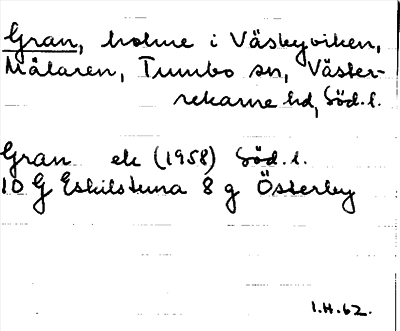 Gran, holme i Väsbyviken,
Mälaren, Tumbo sn, Väster-
rekarne hd, Söd. l.
Gran ek (1958) Söd. l.
10 G Eskilstuna 8 g Österby
I.H. 62.